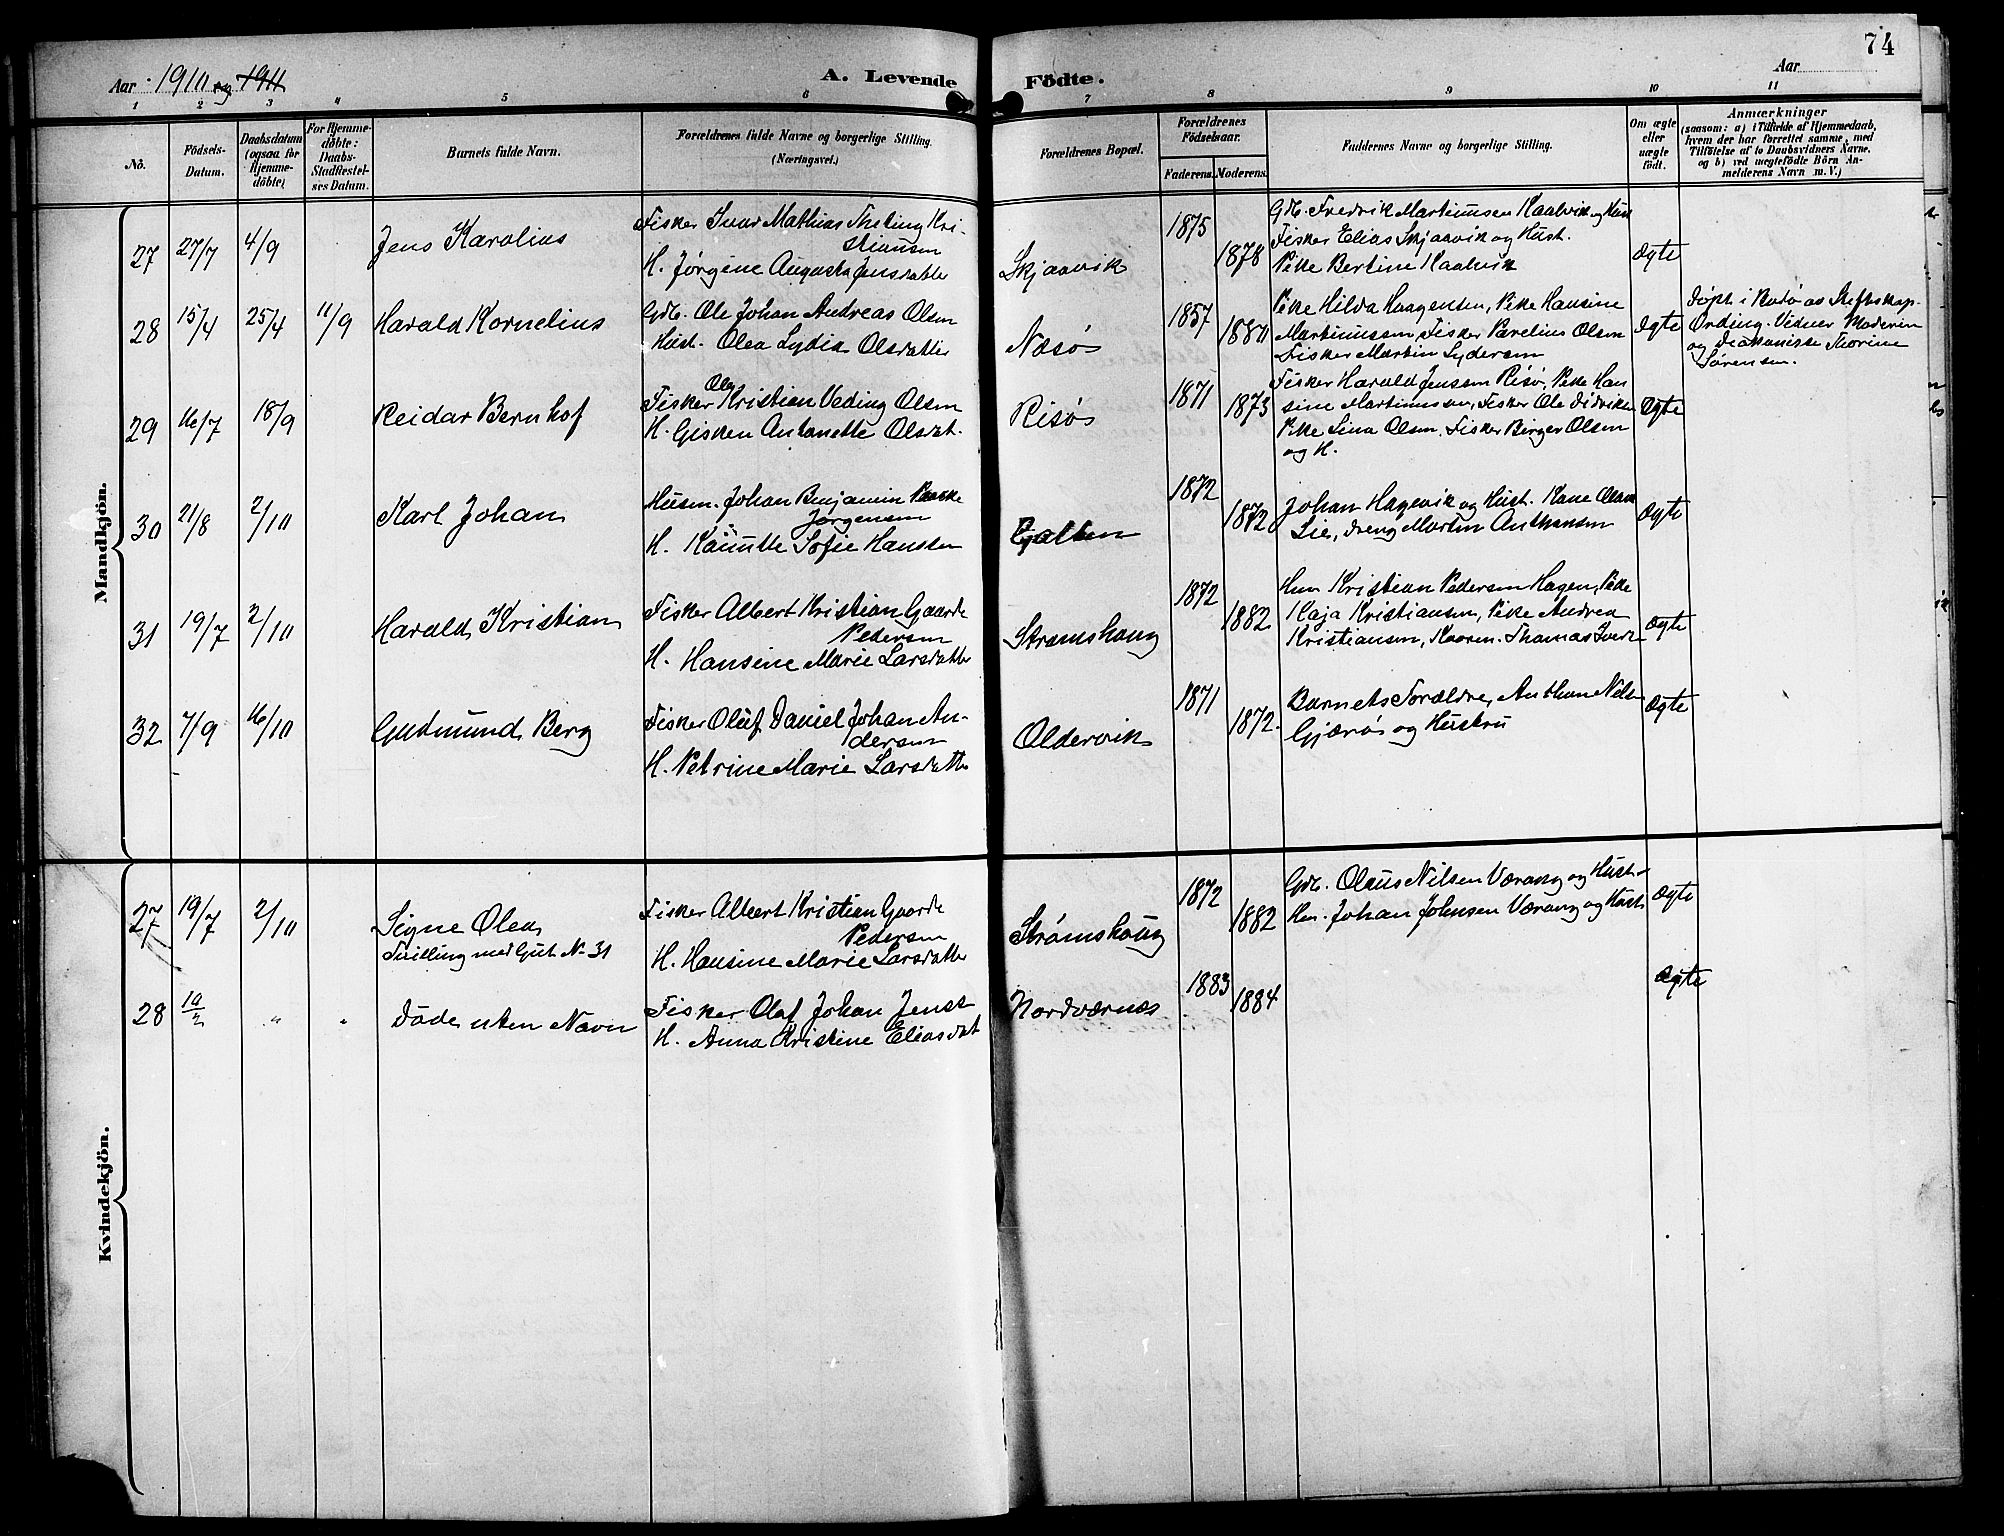 74
Aar 1910 og 1911
A. Levende Födte.
Aar
1 2 3 4 5 6 7 8 9 10 11
No.
Födsels-Datum.
Daabsdatum (ogsaa for Hjemmedöbte)
For Hjemmedöbte: Daabs-Stadfæstelses Datum.
Barnets fulde Navn.
Forældrenes fulde Navne og borgerlige Stilling.
(Næringsvei.)
Forældrenes Bopæl.
Forældrenes Födselsaar.
Faderens. Moderens.
Faddernes Navne og borgerlige Stilling.
Om ægte eller uægte födt.
Anmærkninger
(saasom: a) i Tilfælde af Hjemmedaab, hvem der har forrettet samme, med Tilföielse af to Daabsvidners Navne, og b) ved uægtefödte Börn Anmelderens Navn m. V.)
Mandkjön.
27 27/7 4/9 Jens Karolius
Fisker Ivar Mathias Thiling Kri-
stiansen
H. Jørgine Augusta Jensdatter
Skjaavik 1875 1878
Gdb. Fredrik Martinussen Kaalvik og Hust
Fisker Elias Skjaavik og Hust.
Pike Bertine Kaalvik
Ægte
28 15/4 25/4 11/9 Harald Kornelius
Gdb. Ole Johan Andreas Olsen
Hust. Olea Lydia Olsdatter
Næsø 1857 1880
Pike Hilda Haagensen, Pike Hansine
Martinussen Fisker Parelius Olsen
Fisker Martin Lydersen
Ægte
Døpt i Bodø as Stiftskap.
Ording. Vidner Moderen
og Diakonisse Thorine
Sørensen.
29 16/7 18/9 Reidar Bernhof
Ole
Fisker Kristian Veding Olsen
H. Gisken Antonette Olsdat.
Risø 1871 1873
Fisker Harald Jenssen Risø, Pike Han
sine Martinussen, Fisker Ole Didriksen
Pike Lina Olsen. Fisker Birger Olsen
og H.
Ægte
30 21/8 2/10 Karl Johan
Husm. Johan Benjamin
Jørgensen
H. Sofie Hansen
Galten 1872 1872
Johan Hagevik og Hust. Kane Olsen
Lie, Dreng Martin Anthonsen
Ægte
31 19/7 2/10 Harald Kristian
Fisker Albert Kristian Gaarde
Pedersen
H. Hansine Marie Larsdatter
Strømshaug 1872 1882
Hm Kristian Pedersen Hagen, Pike
Kaja Kristiansen, Pike Andrea
Kristiansen, Thomas
Ægte
32 7/9 16/10 Gudmund Berg
Fisker Oluf Daniel Johan An-
dersen
H. Petrine Marie Larsdatter
Oldervik 1871 1872.
Barnets Forældre, Anthon Nils
Gjærø og Hustru
Ægte
Kvindekjön.
27 19/7 2/10 Signe Olea
Tvilling med Gut N. 31
Fisker Albert Kristian Gaarde
Pedersen
H. Hansine Marie Larsdatter
Strømshaug 1872 1882
Gdb. Olaus Nilsen Værang og Hust.
Hm. Johan Johnsen Værang og Hust.
Ægte
28 10/2 " " Døde uten Navn
Fisker Olaf Johan Jens
H. Anna Kristine Eliasdat
Nordværnes 1883 1884
Ægte